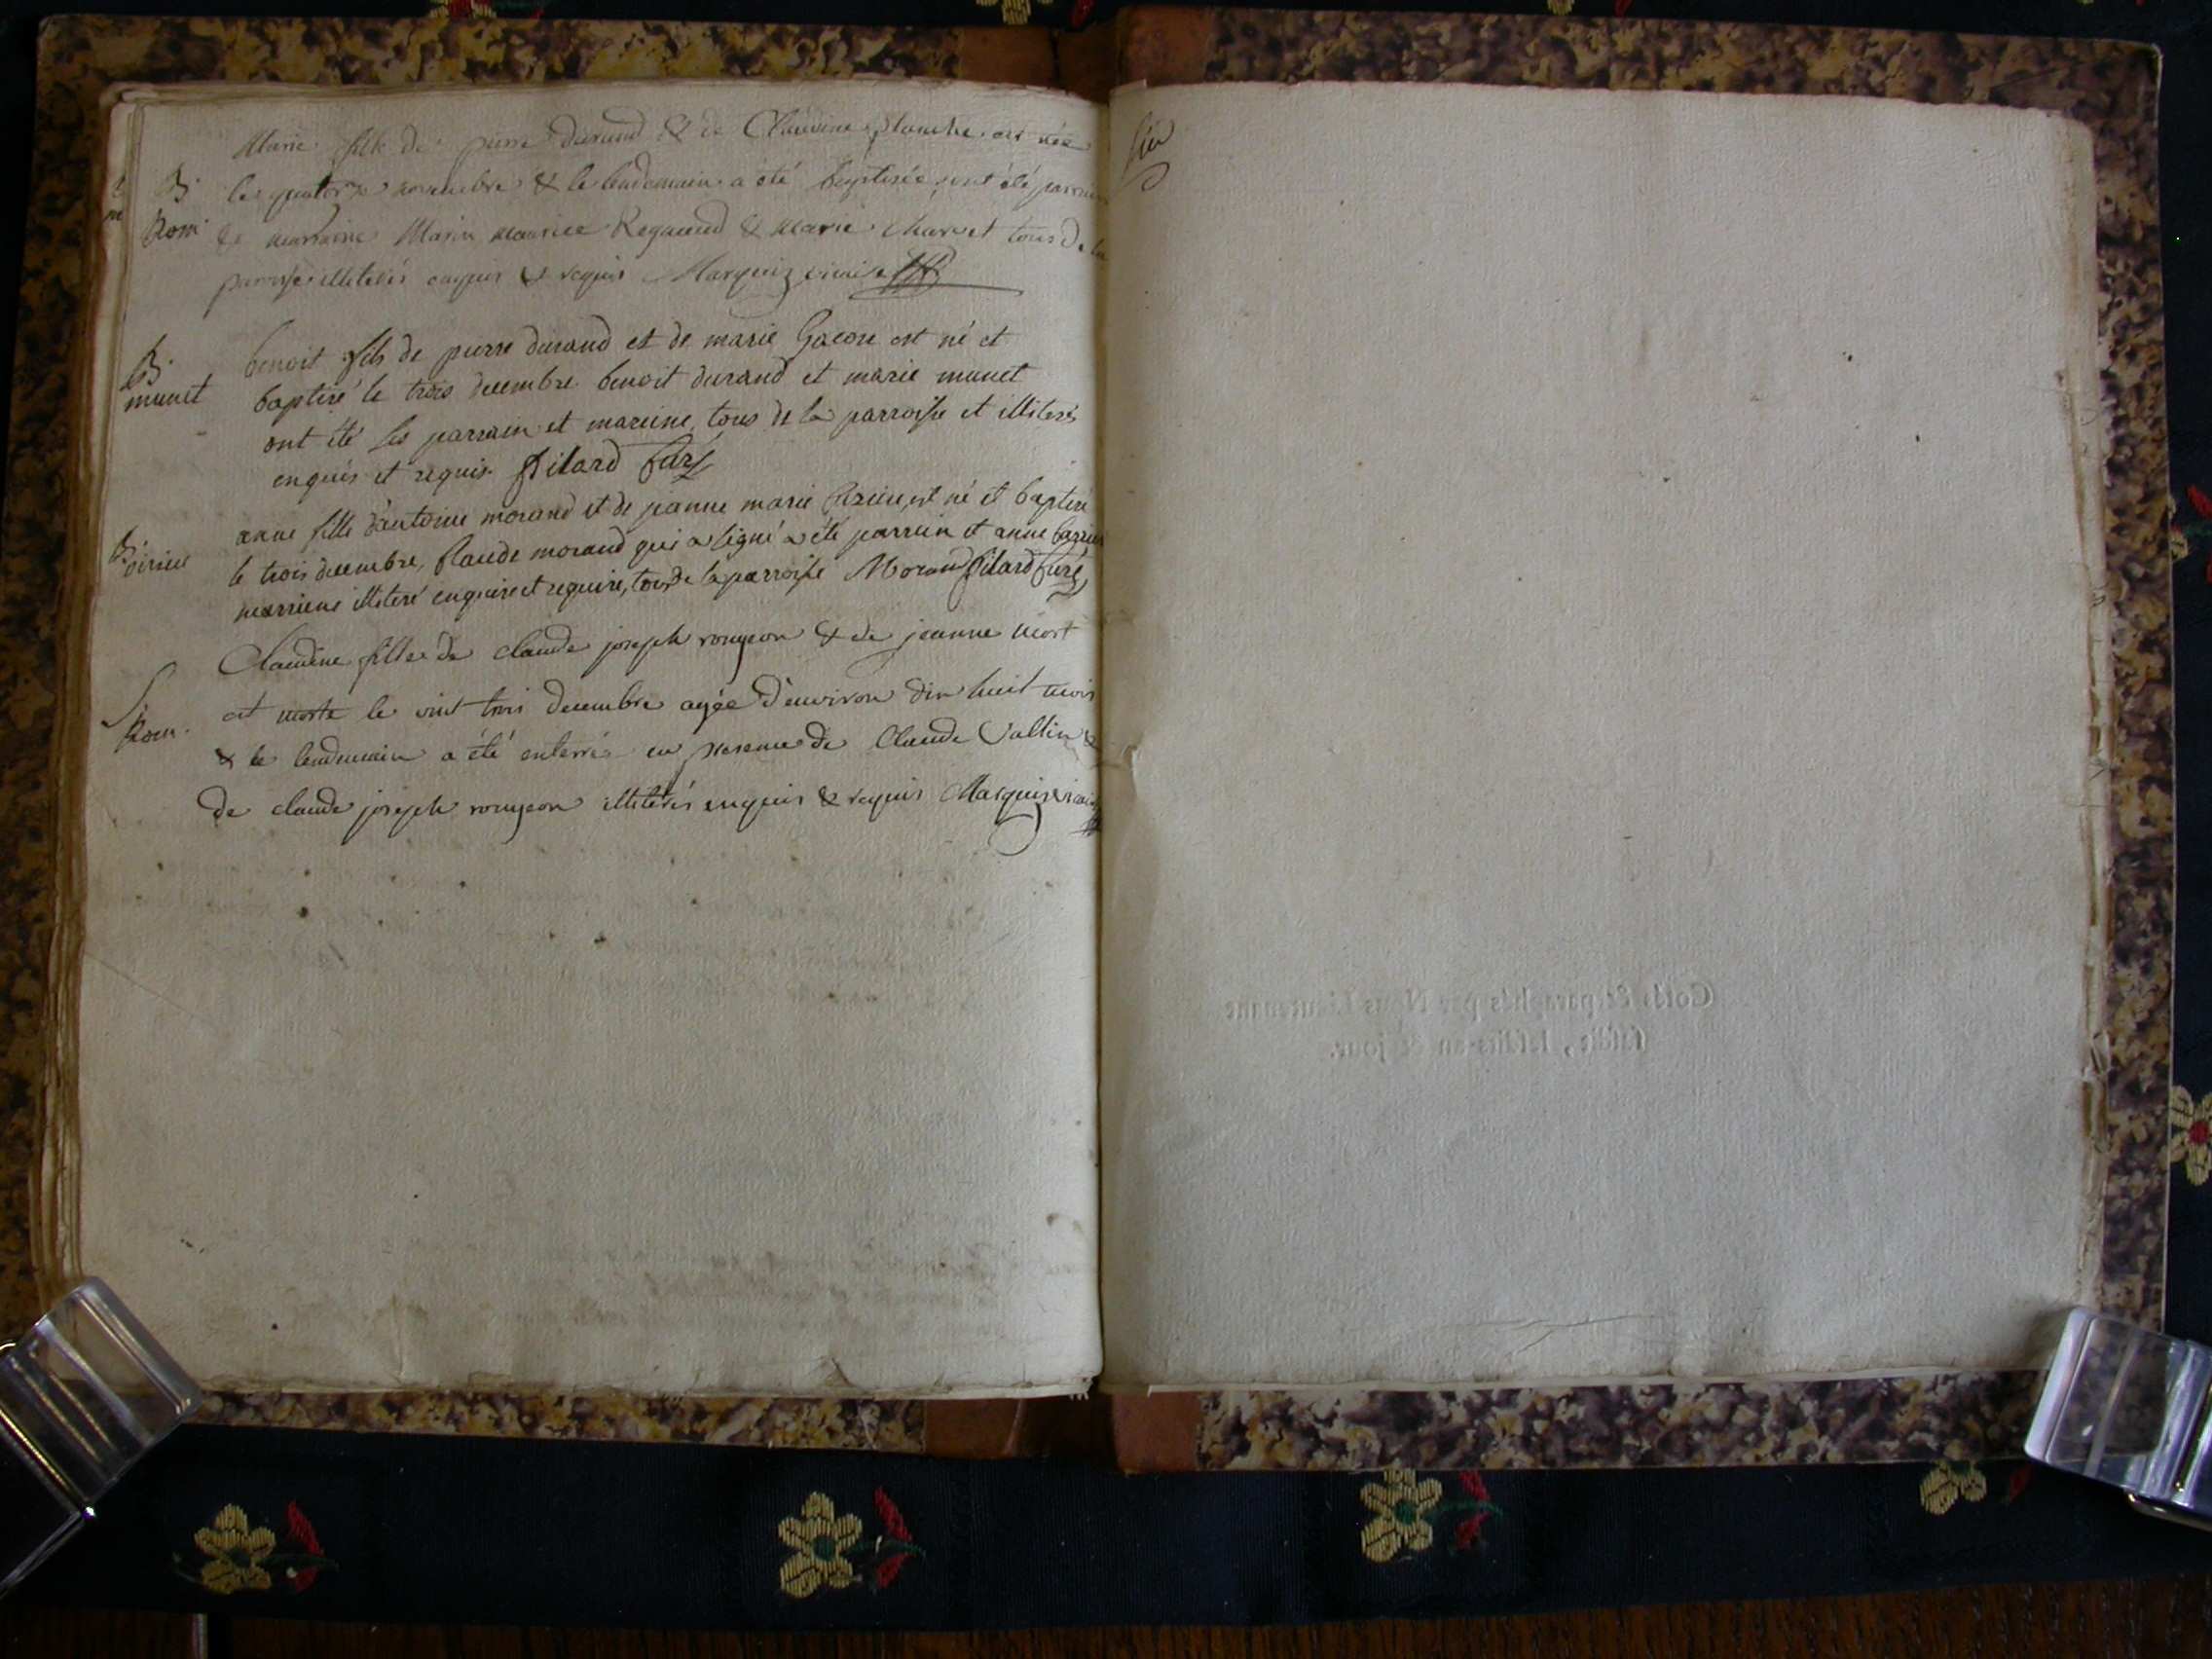 Marie fille de pierre durand & de Claudine planche est née
B. le quatorze novembre & le lendemain a été baptisée, ont été parrain
Rom. & marraine Marin maurice Regaund & marie charvet tous de la
paroisse illiterés enquis & requis Marquiz vicaire
benoit fils de pierre durand et de marie Gacon est né et
B. baptisé le trois decembre benoit durand et marie munet
munet
ont été les parrain et mareine, tous de la parroisse et illiterés
enquis et requis. Pilard Curé
anne fille d'antoine morand et de jeanne marie est né et baptisé
B. le trois decembre, Claude morand qui a signé a été parrain et anne
marriene illiteré enquise et requise, tous de la parroisse Moran Pilard Curé
Claudine fille de claude joseph rongeon & de jeanne mort
S. est morte le vint trois decembre agée d'environ dix huit mois
Rom. & le lendemain a été enterrée en presence de Claude Vallin &
de claude joseph rongeon illiterés enquis & requis Marquiz vicaire
Cottés & paraphés par Nous Lieutenant
susdit, lesdits an & jour.